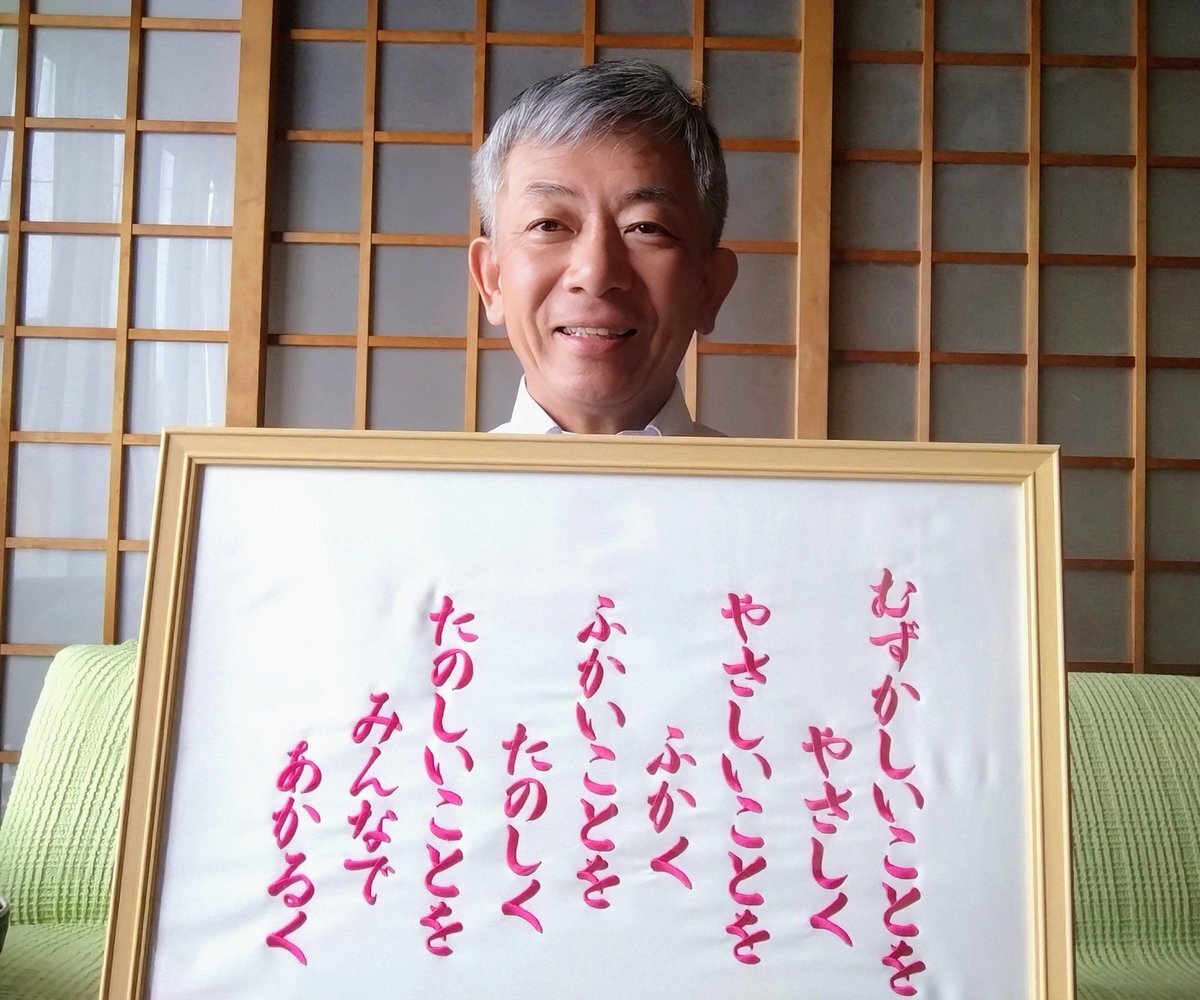 むずかしいことを
やさしく
やさしいことを
ふかく
ふかいことを
たのしく
たのしいことを
みんなで
あかるく